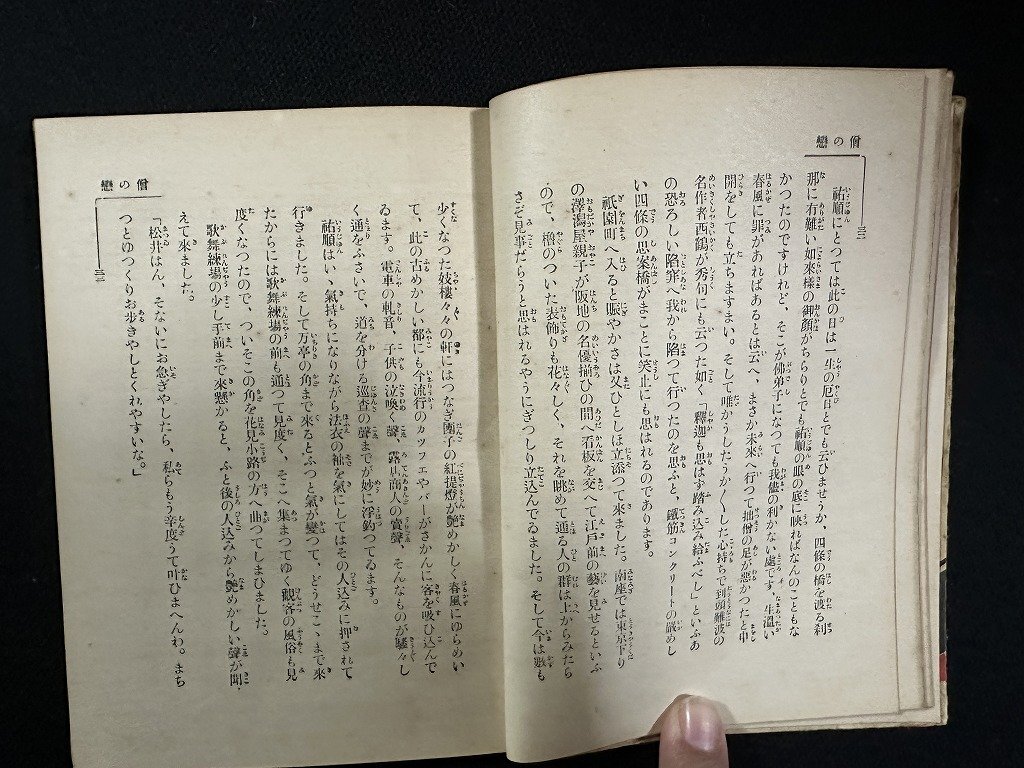 僧の戀
祐順にとつては此の日は一生の厄日とでも云ひませうか、四條の橋を渡る刹
那に有難い如來樣の御顏がちらりとでも祐順の眼の底に映ればなんのこともな
かつたのですけれど、そこが佛弟子になつても我儘の利かない處です、生溫い
春風に罪があればあるとは云へ、まさか未來へ行つて拙僧の足が惡かつたと申
開をしても立ちますまい。そして唯かうしたうかくした心持ちで到頭難波の
名作者西鶴が秀句にも云つた如く「釋迦も思はず踏み込み給ふべし」といふあ
の恐ろしい陷穽へ我から陷つて行つたのを思ふと、鐵筋コンクリートの嚴めし
い四條の思案橋がまことに笑止にも思はれるのであります。
祇園町へ入ると賑やかさは又ひとしほ立添つて來ました。南座では東京下り
の澤潟屋親子が阪地の名優揃ひの間へ看板を交へて江戸前の藝を見せるといふ
ので、櫓のついた表飾りも花々しく、それを眺めて通る人の群は上からみたら
さぞ見事だらうと思はれるやうにぎつしり立込んでゐました。そして今は數も
僧の戀
少くなつた妓樓々々の軒にはつなぎ團子の紅提燈が艶めかしく春風にゆらめい
て、此の古めかしい都にも今流行のカツフエやバーがさかんに客を吸ひ込んで
ゐます。電車の軋音、子供の泣喚聲、露店商人の賣聲、そんなものが騷々し
く通をふさいで、道を分ける巡査の聲までが妙に浮釣つてゐます。
祐順はいゝ氣持ちになりながら法衣の袖を氣にしてはその人込みに押されて
行きました。そして万亭の角まで來るとふつと氣が變つて、どうせこゝまで來
たからには歌舞練場の前も通つて見度く、そこへ集まつてゆく觀客の風俗も見
度くなつたので、ついそこの角を花見小路の方へ曲つてしまひました。
歌舞練場の少し手前まで來懸かると、ふと後の人込みから艶めかしい聲が聞
えて來ました。
「松井はん、そないにお急ぎやしたら、私らもう辛度うて叶ひまへんわ。まち
つとゆつくりお步きやしとくれやすいな。」